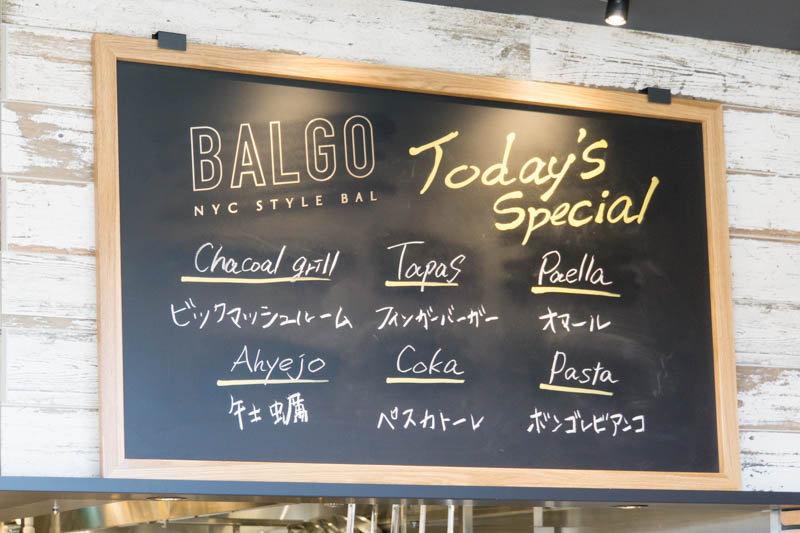 BALGO
NYC STYLE BAL
Today's
Special
Chacoal grill
ビックマッシュルーム
Tapas
フィンガーバーガー
Paella
オマール
Ahyejo
牡蠣
Coka
ペスカトーレ
Pasta
ボンゴレビアンコ